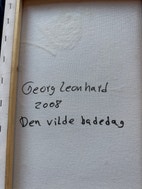 Georg Leonhard
2008
Den vilde badedag